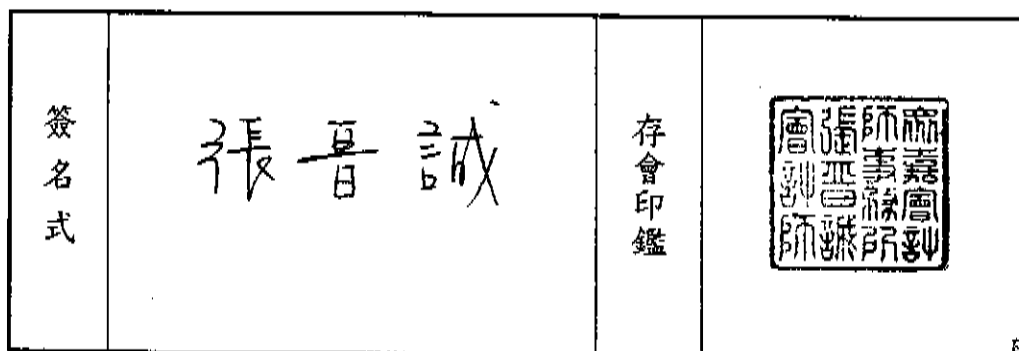 簽名式
張晉誠
存會印鑑
嘉會計
師事務所
張晉誠
會計師